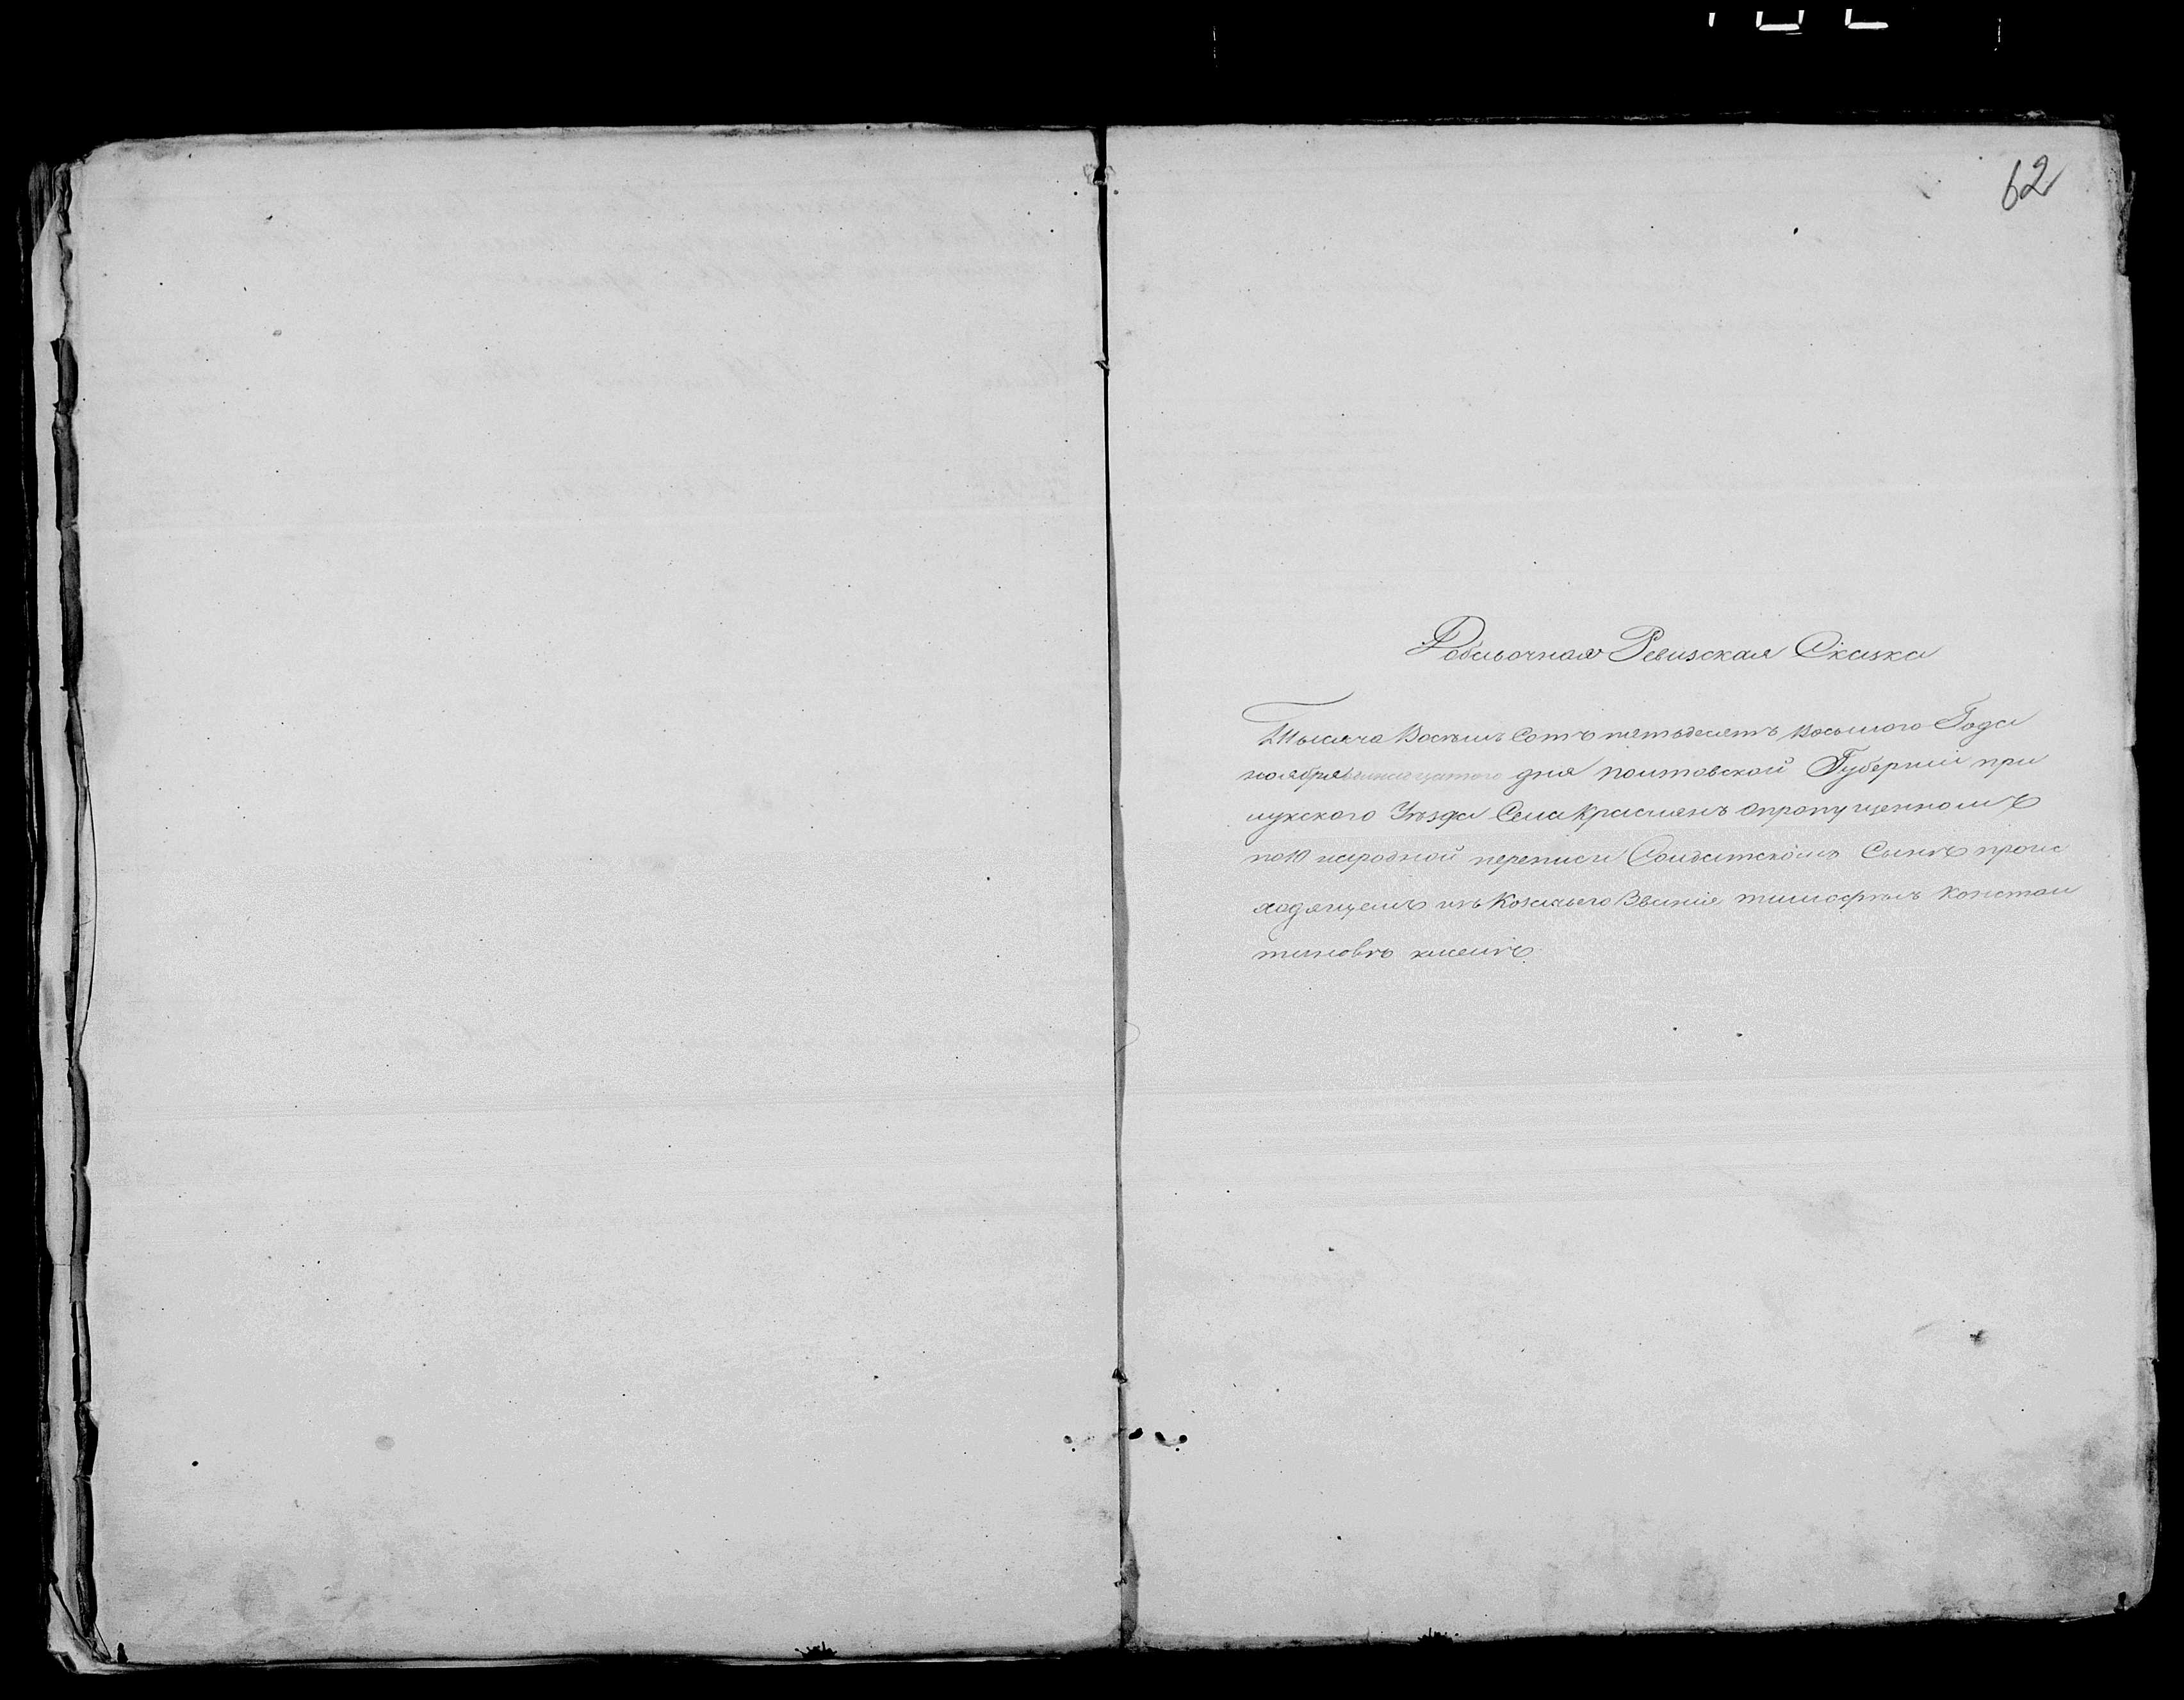 62
Добавочная Ревизская Сказка
Тысяча Восемь Сотъ пятьдесятъ Восьмого Года
ноября дня полтавской Губерніи при
лукского Уѣзда Села Краслянъ опропущенномъ
по 10 народной переписи Солдатскомъ Сынѣ проис
ходящемъ изъ Козачьего Званія тимофѣѣ Констан
тиновѣ